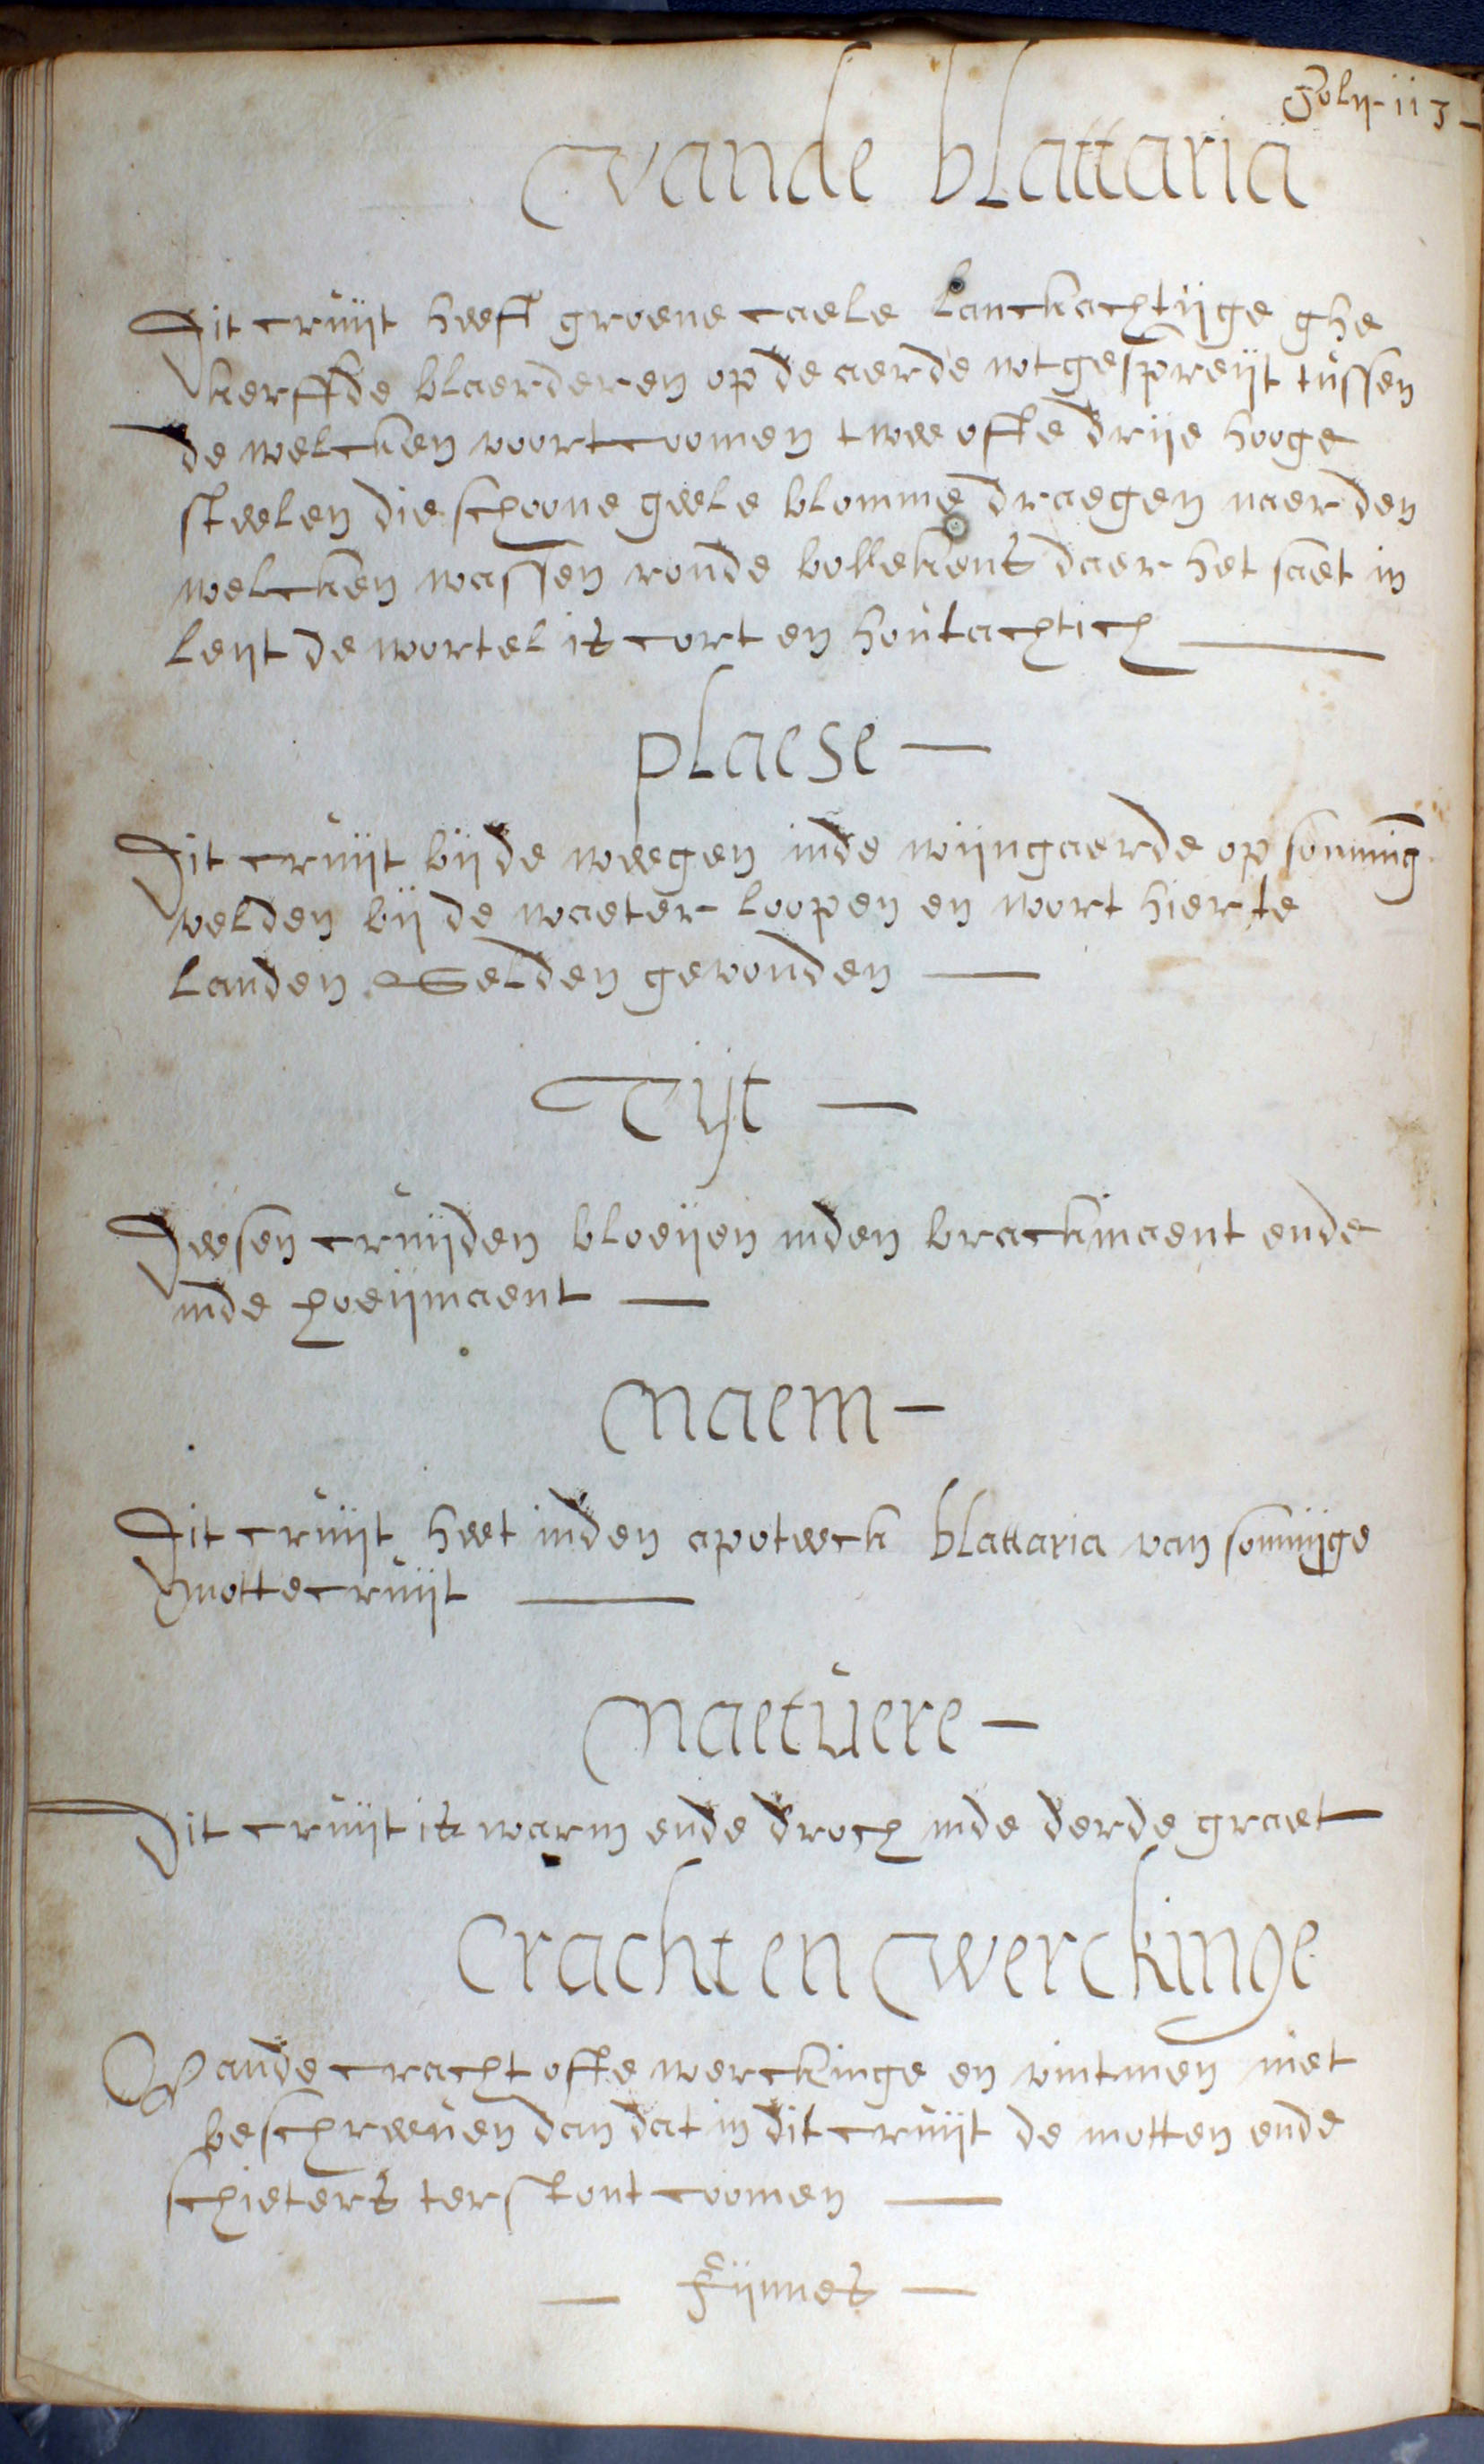 Foly 113
vande blattaria
Dit cruijt heeft groene caele lanckachtijge ghe
kerffde blaerderen op de aerde wtgespreijt tussen
de welcken voortcoomen twee offte drije hooge
steelen die schoone geele blomme draegen naer den
welcken wassen ronde bollekens daer het saet in
leyt de wortel is cort en houtachtich
plaese
Dit cruijt bij de weegen inde wijngaerde op sommig
velden bij de waeter loopen en wort hier te
landen Selden gevonden
Tijt
Deesen cruijden bloeijen inden brackmaent ende
inde hoeijmaent
naem
Dit cruijt heet inden apoteeck blattaria van sommijge
mottecruijt
naetuere
Dit cruijt is warm ende droch inde derde graet
cracht en werckinge
Vande cracht offte werckinge en vintmen niet
beschreeuen dan dat in dit cruijt de motten ende
schieters terstont coomen
Fijnnes